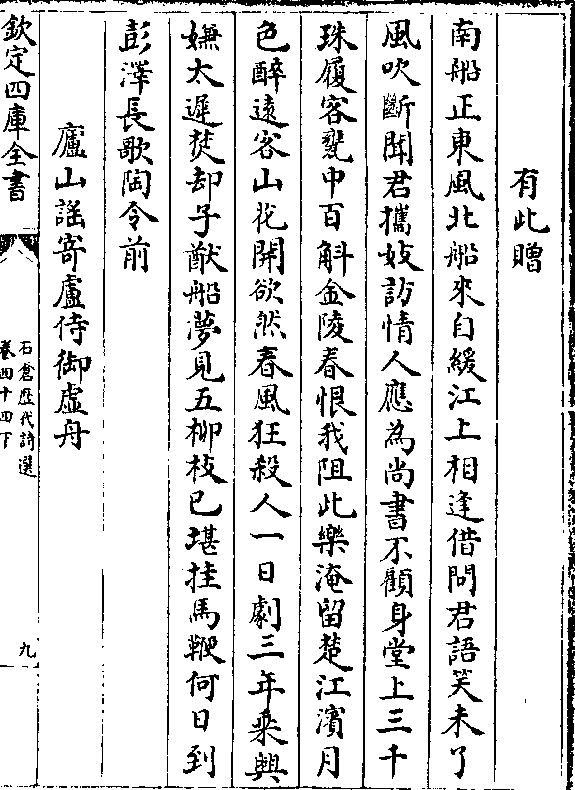 有此贈
南船正東風北船來自緩江上相逢借問君語笑未了
風吹斷聞君攜妓訪情人應為尚書不顧身堂上三千
珠履客甕中百斛金陵春恨我阻此樂淹留楚江濱月
色醉遠客山花開欲然春風狂殺人一日劇三年乘興
嫌太遲焚却子猷船夢見五柳枝已堪挂馬鞭何日到
彭澤長歌陶令前
廬山謡寄盧侍御虚舟
欽定四庫全書
石倉歴代詩選
卷四十四下
九